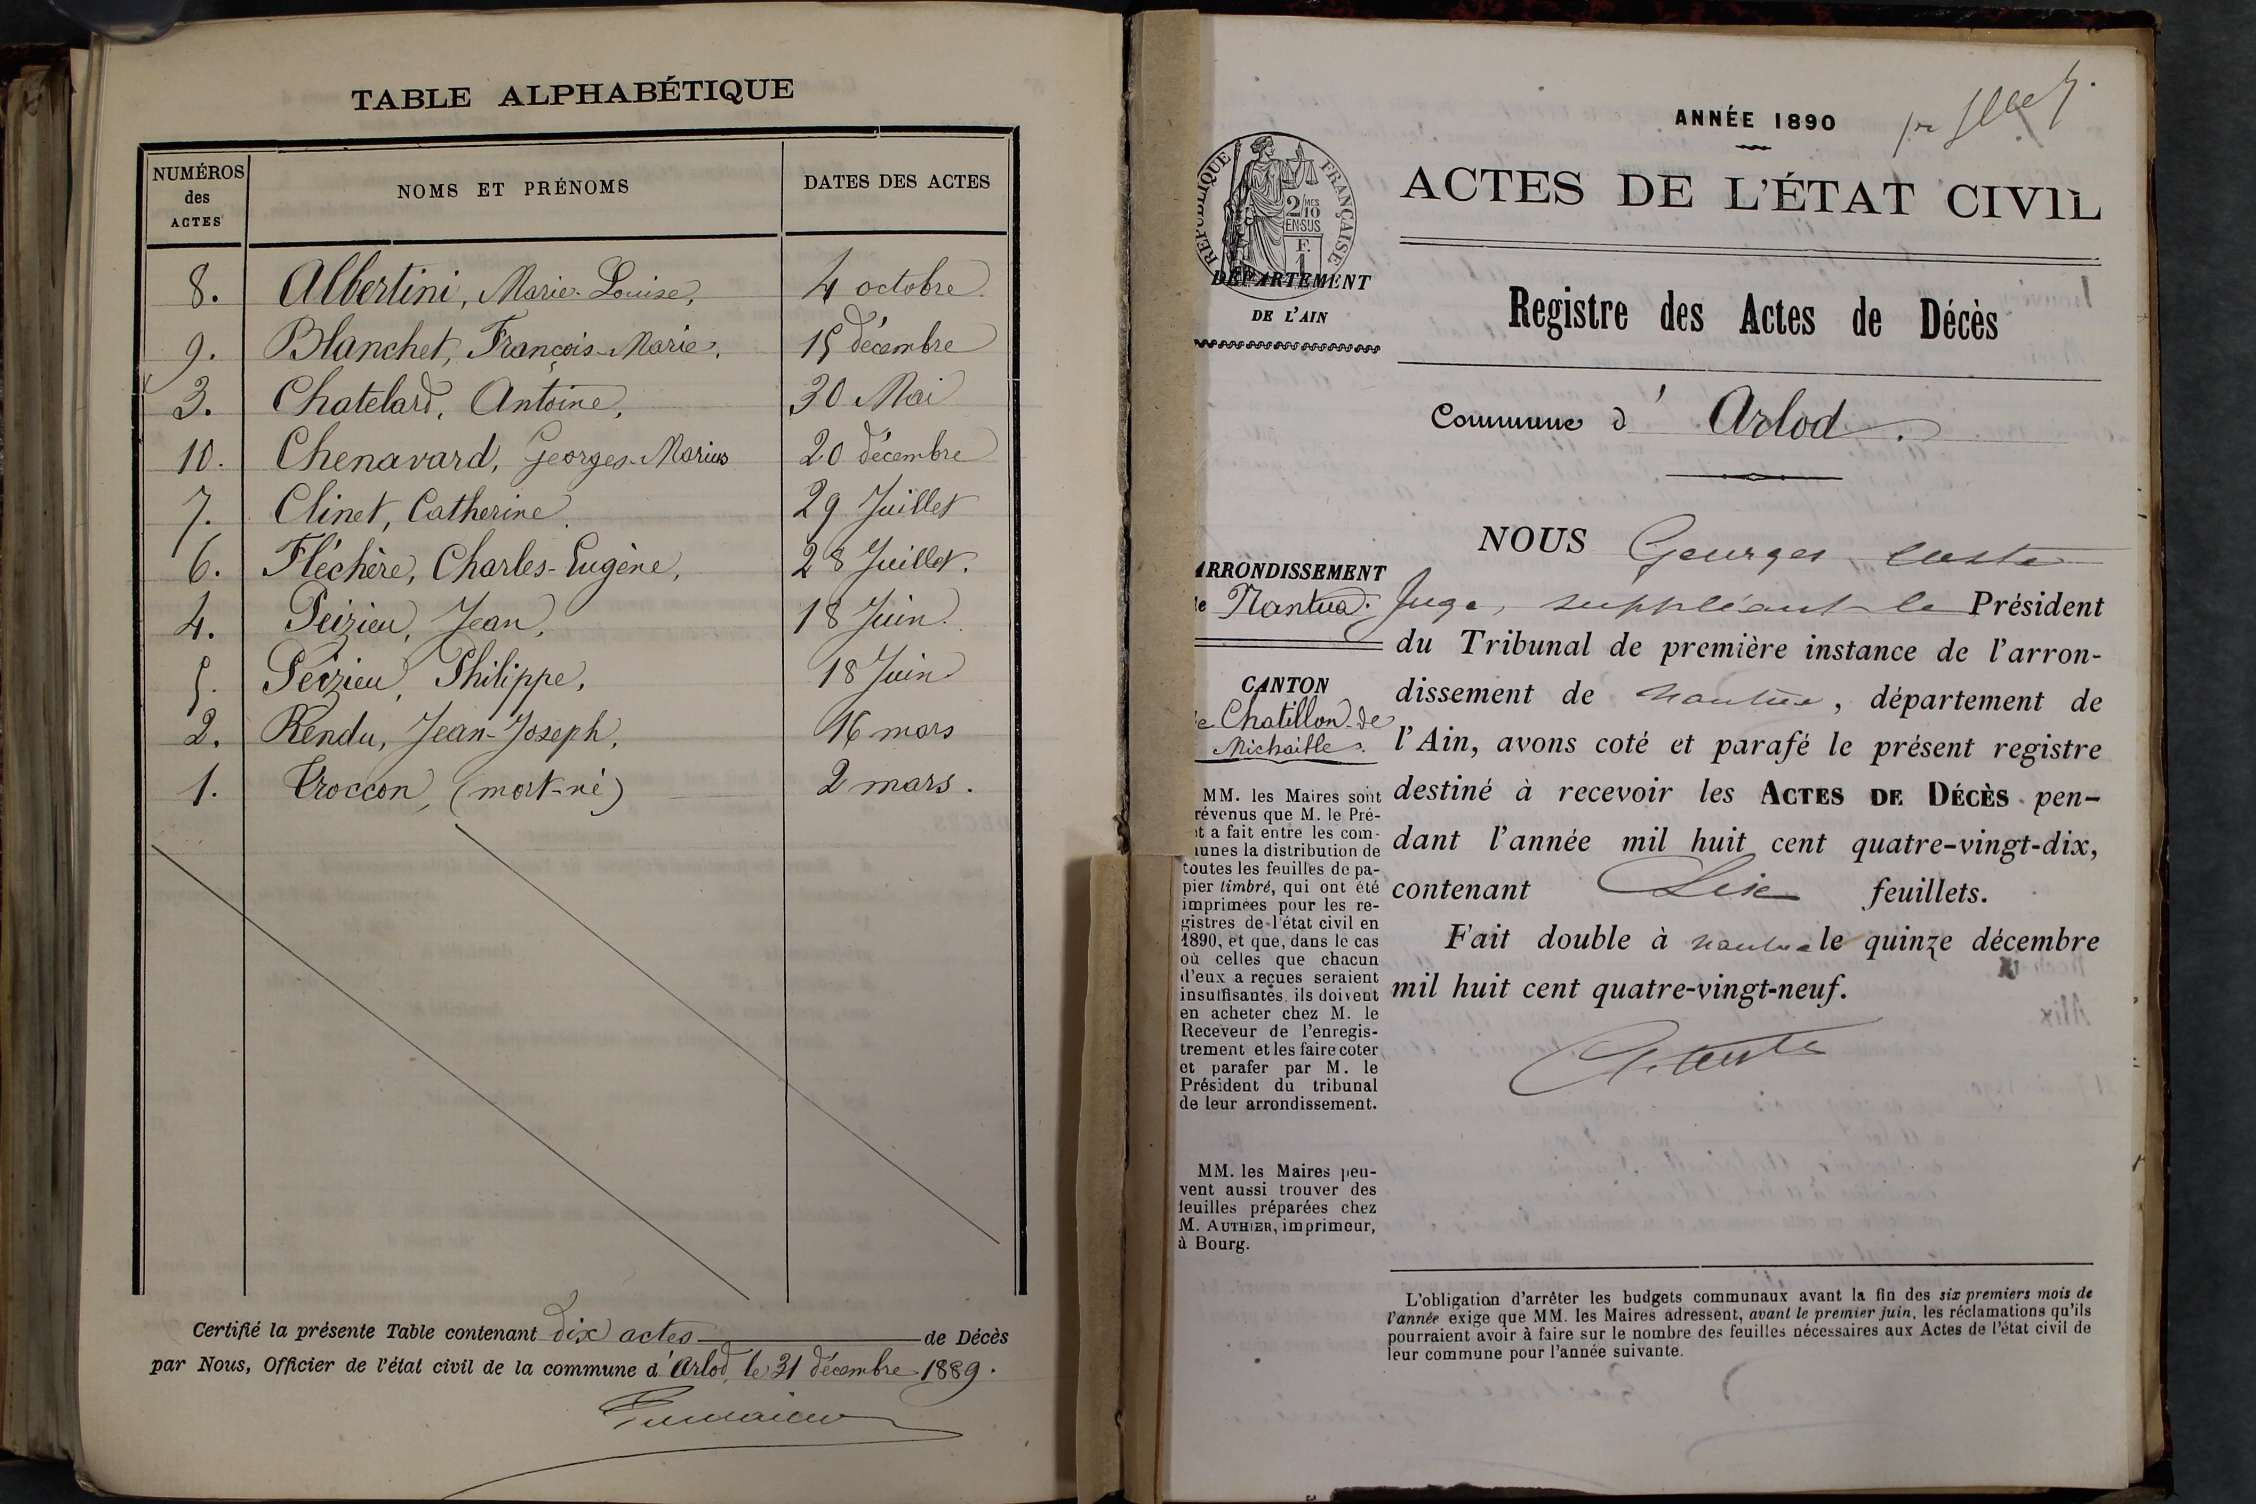 TABLE ALPHABÉTIQUE
NUMÉROS des ACTES NOMS ET PRÉNOMS DATES DES ACTES
8. Albertini, Marie-Louise, 4 octobre
9. Blanchet, François-Marie, 15 décembre
3. Chatelard, Antoine, 30 Mai
10. Chenavard, Georges-Marius 20 décembre
7. Clinet, Catherine. 29 Juillet
6. Fléchère, Charles-Eugène, 28 Juillet.
4. Peizieu, Jean, 18 Juin.
5. Peizieu, Philippe, 18 Juin
2. Rendu, Jean-Joseph, 16 mars
1. Troccon, (mort-né) 2 mars.
Certifié la présente Table contenant dix actes de Décès
par Nous, Officier de l'état civil de la commune d'Arlod, le 31 décembre 1889.
ANNÉE 1890
ACTES DE L'ÉTAT CIVIL
RÉPUBLIQUE FRANÇAISE
2/10 MES
EN SUS
F.
1
DÉPARTEMENT
DE L'AIN
Registre des Actes de Décès
Commune d'Arlod.
ARRONDISSEMENT
de Nantua.
CANTON
de Chatillon-de
Michaille.
MM. les Maires sont
révenus que M. le Pré-
et a fait entre les com-
unes la distribution de
toutes les feuilles de pa-
pier timbré, qui ont été
imprimées pour les re-
gistres de l'état civil en
1890, et que, dans le cas
où celles que chacun
d'eux a reçues seraient
insuffisantes, ils doivent
en acheter chez M. le
Receveur de l'enregis-
trement et les faire coter
et parafer par M. le
Président du tribunal
de leur arrondissement.
MM. les Maires peu-
vent aussi trouver des
feuilles préparées chez
M. AUTHIER, imprimeur,
à Bourg.
NOUS Georges
Juge, suppléant le Président
du Tribunal de première instance de l'arron-
dissement de Nantua, département de
l'Ain, avons coté et parafé le présent registre
destiné à recevoir les ACTES DE DÉCÈS pen-
dant l'année mil huit cent quatre-vingt-dix,
contenant feuillets.
Fait double à Nantua le quinze décembre
mil huit cent quatre-vingt-neuf.
L'obligation d'arrêter les budgets communaux avant la fin des six premiers mois de
l'année exige que MM. les Maires adressent, avant le premier juin, les réclamations qu'ils
pourraient avoir à faire sur le nombre des feuilles nécessaires aux Actes de l'état civil de
leur commune pour l'année suivante.